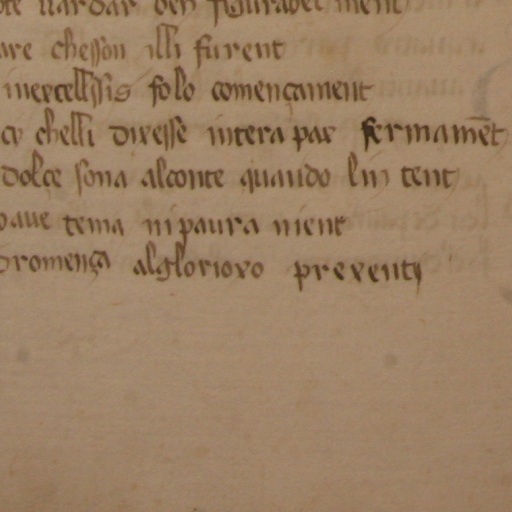 uardar ben figurabel ment
are chesson illi furent
inexcellissis solo començament
chelli dixesse intera pax fermamēt
dolçe sona alconte quando lin tent
tema ni paura nient
dromença alglorioxo prexenti